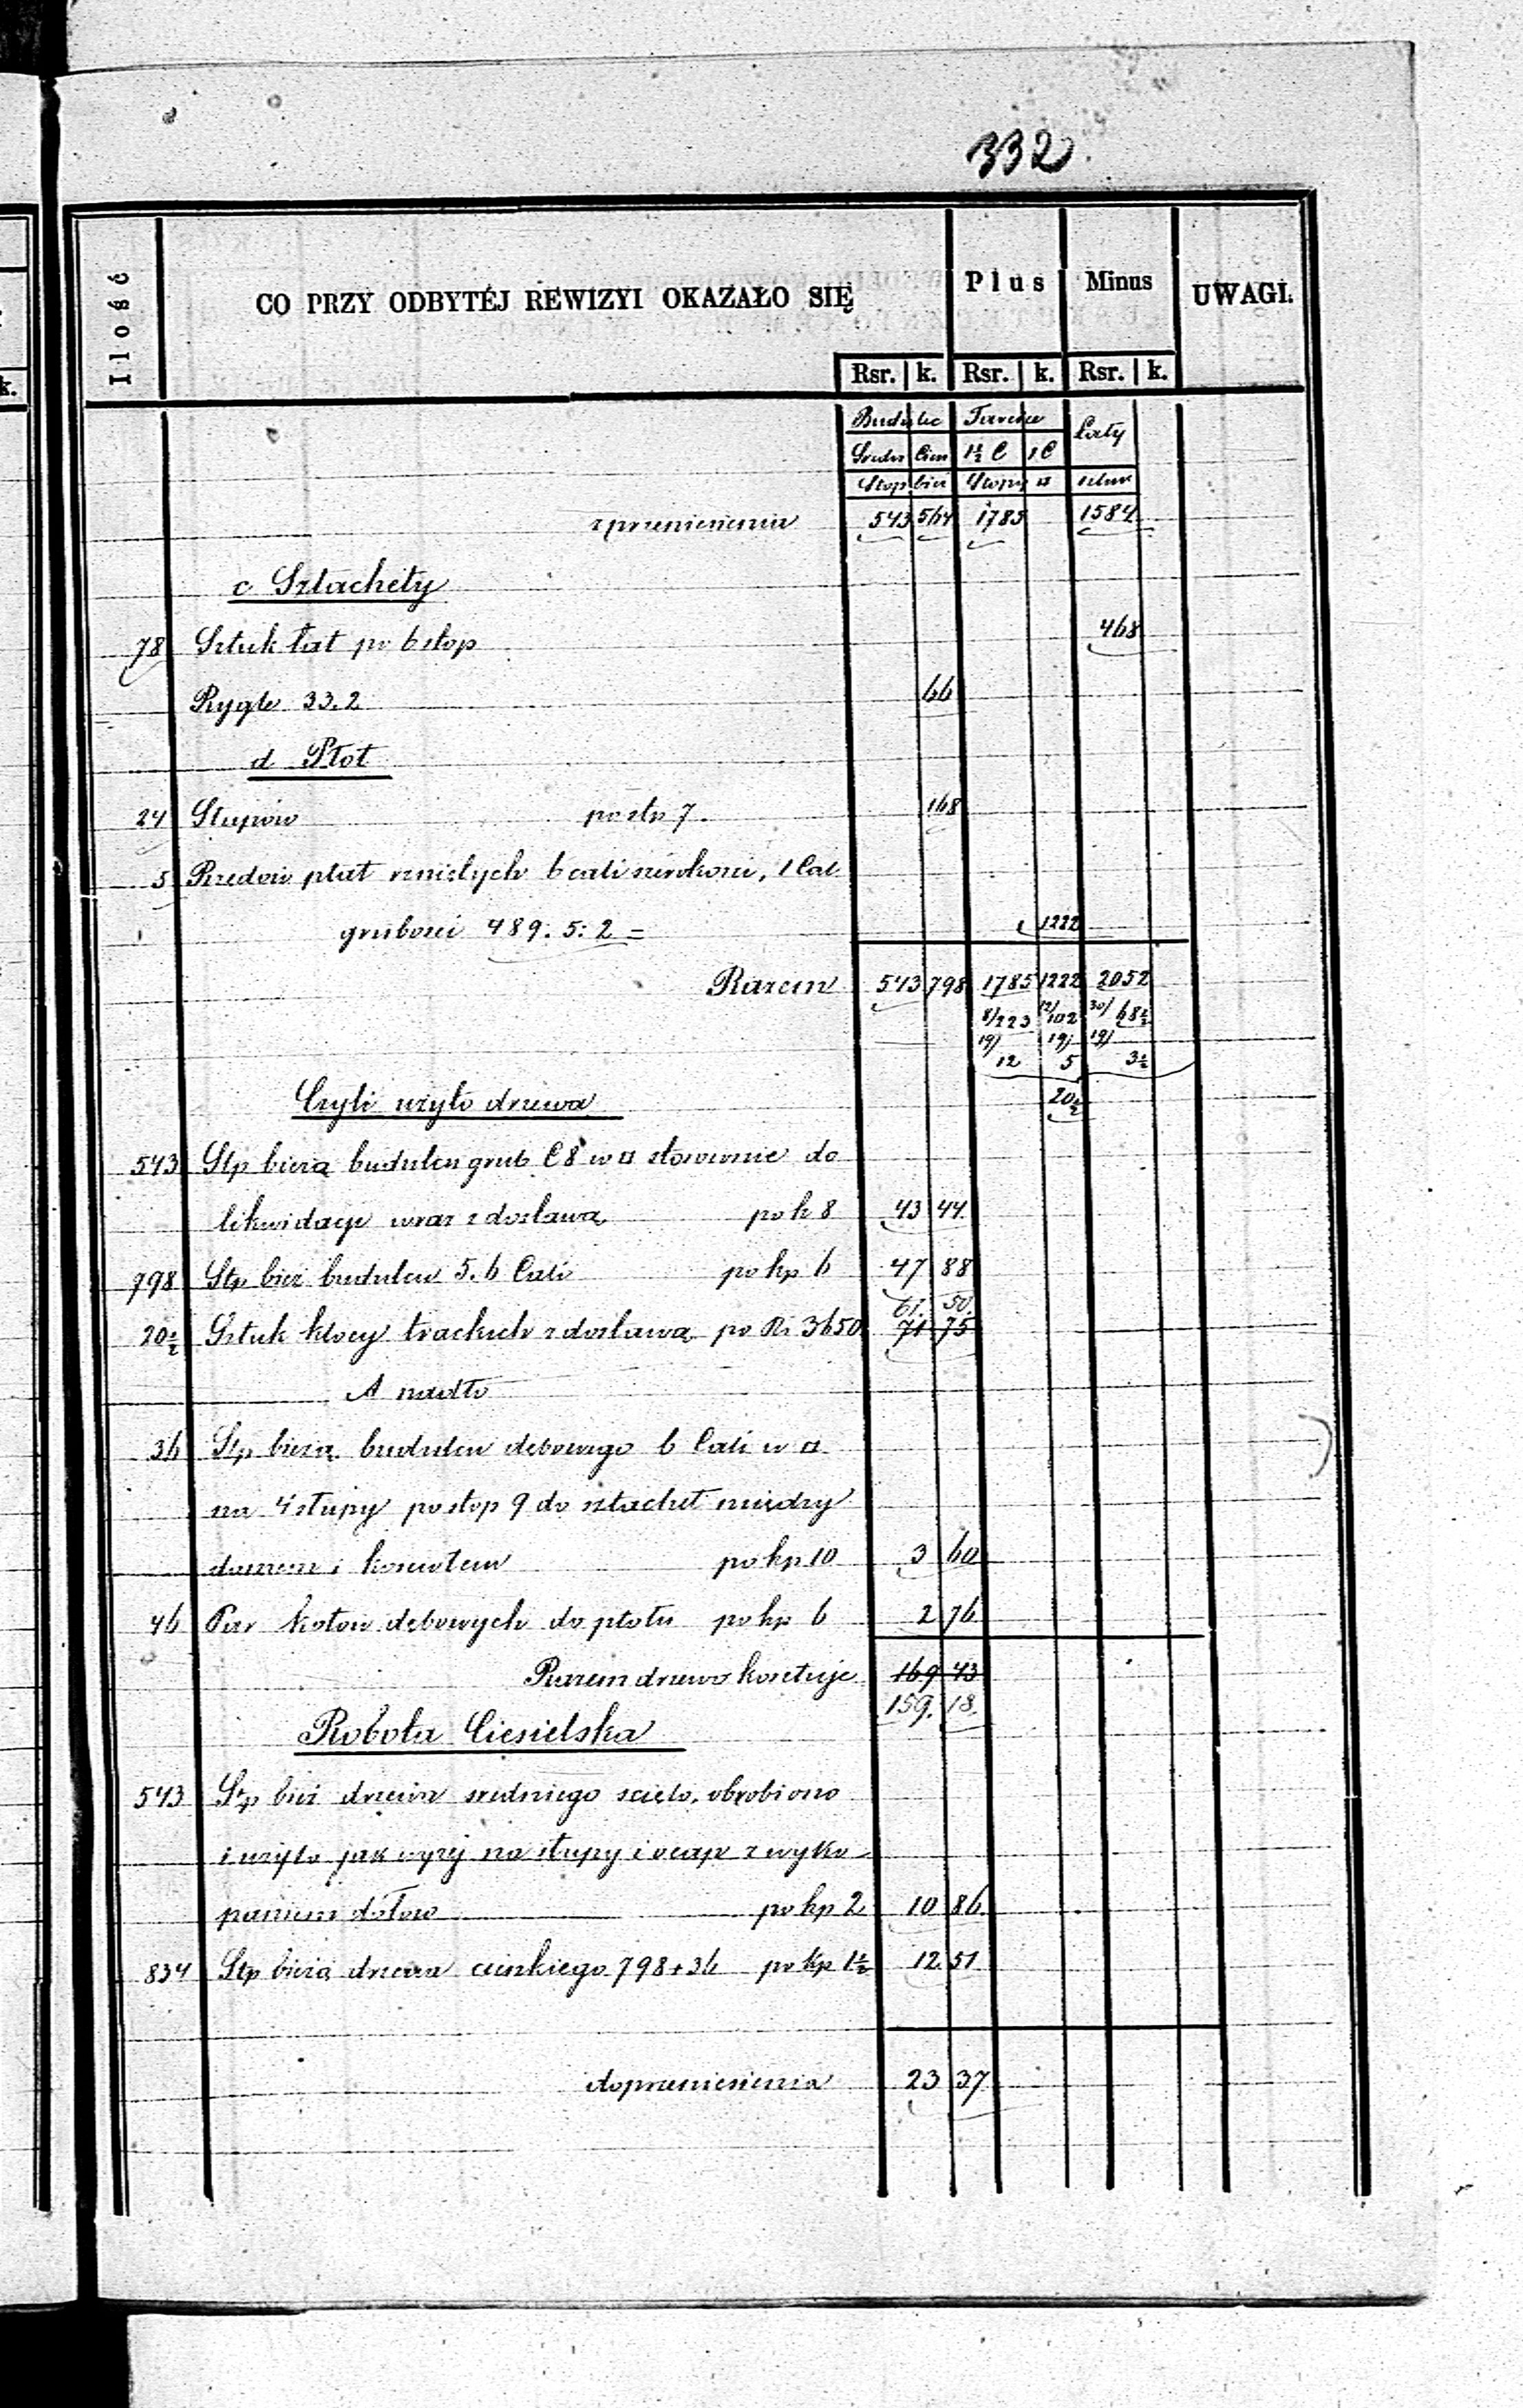 332
Ilość
CO PRZY ODBYTÉJ REWIZYI OKAZAŁO SIĘ
Plus
Minus
UWAGI.
k.
Rsr. k. Rsr. k. Rsr. k.
Budulec Tarcice Łaty
Średn Cien 1½ C 1 C
Stop bież Stopy □ sztuk
z przeniesienia 543 564 1785 1584
c Sztachety
78 Sztuk łat po 6 stop 468
Rygle 33.2 66
d Płot
24 Słupów po stp 7. 168
5 Rzędów płat rzniętych 6 cali szerokości, 1 Cal
grubości 489. 5: 2 = 1222
Razem 543 798 1785 1222 2052
8/223 12/102 30/68½
19/ 19/ 19/
12 5 3½
20½
Czyli użyto drzewa
543 Stp bieżą budulcu grub C 8 w □ stosownie do
likwidacyi wraz z dostawą po k 8 43 44
798 Stp bież budulcu 5.6 Cali po kp 6 47 88
61. 50.
20½ Sztuk klocy trackich z dostawą po Rs 3 k 50 71 75
A nadto
36 Stp bieżą budulcu dębowego 6 Cali w □
na 4 słupy po stop 9 do sztachet między
domem i po kp 10 3 60
46 Par kołów dębowych do płotu po kp 6 2 76
Razem drzewo kosztuje 169 43
159. 18.
Robota Ciesielska
543 Stp bież drzewa średniego ścięto, obrobiono
i użyto jak wyżej na słupy i ocap z wyko-
paniem dołów po kp 2 10 86
834 Stp bieżą drzewa cienkiego 798 + 36 po kp 1½ 12 51
do przeniesienia 23 37